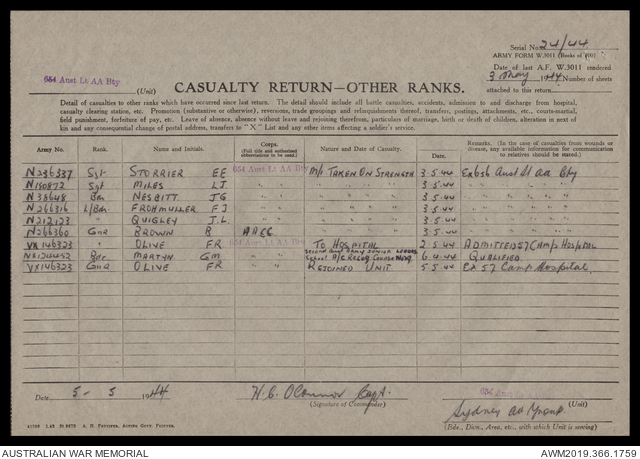 Serial No. 24/44
ARMY FORM W.3011 (Books of 100)
Date of last A.F. W.3011 rendered
3 May 1944 Number of sheets
attached to this return
654 Aust Lt AA Bty
(Unit)
CASUALTY RETURN—OTHER RANKS.
Detail of casualties to other ranks which have occurred since last return. The detail should include all battle casualties, accidents, admission to and discharge from hospital,
casualty clearing station, etc. Promotion (substantive or otherwise), reversions, trade groupings and relinquishments thereof, transfers, postings, attachments, etc., courts-martial,
field punishment, forfeiture of pay, etc. Leave of absence, absence without leave and rejoining therefrom, particulars of marriage, birth or death of children, alteration in next of
kin and any consequential change of postal address, transfers to "X" List and any other items affecting a soldier's service.
Army No. Rank. Name and Initials. Corps. (Full title and authorised abbreviations to be used) Nature and Date of Casualty. Date. Remarks. (In the case of casualties from wounds or disease, any available information for communication to relatives should be stated.)
N236337 Sgt STORRIER EE 654 Aust Lt AA Bty M/I TAKEN ON STRENGTH 3.5.44 Ex Aust Lt AA Bty
N180872 Sgt MILES LJ " " " " 3.5.44 " " " "
N38648 Bdr NESBITT JG " " " " 3.5.44 " " " "
N266316 L/Bdr FROHMULLER FJ " " " " 3.5.44 " " " "
N212123 " QUIGLEY J.L. " " " " 3.5.44 " " " "
N266360 Gnr BROWN B 3.5.44 " " " "
VX146323 " OLIVE FR 654 Aust Lt AA Bty TO HOSPITAL 2.5.44 ADMITTED 57 CAMP HOSPITAL
Bdr MARTYN GM School A/C Recog Course 6.4.44 QUALIFIED
VX146323 Gnr OLIVE FR REJOINED UNIT 5.5.44 Ex 57 Camp Hospital
Date 5 - 5 1944 H. C. O'Connor Capt.
(Signature of Commander)
(Unit)
Sydney AA Group
(Bde., Divn., Area, etc., with which Unit is serving)
A. H. Pettifer, Acting Govt. Printer.
AUSTRALIAN WAR MEMORIAL
AWM2019.366.1759